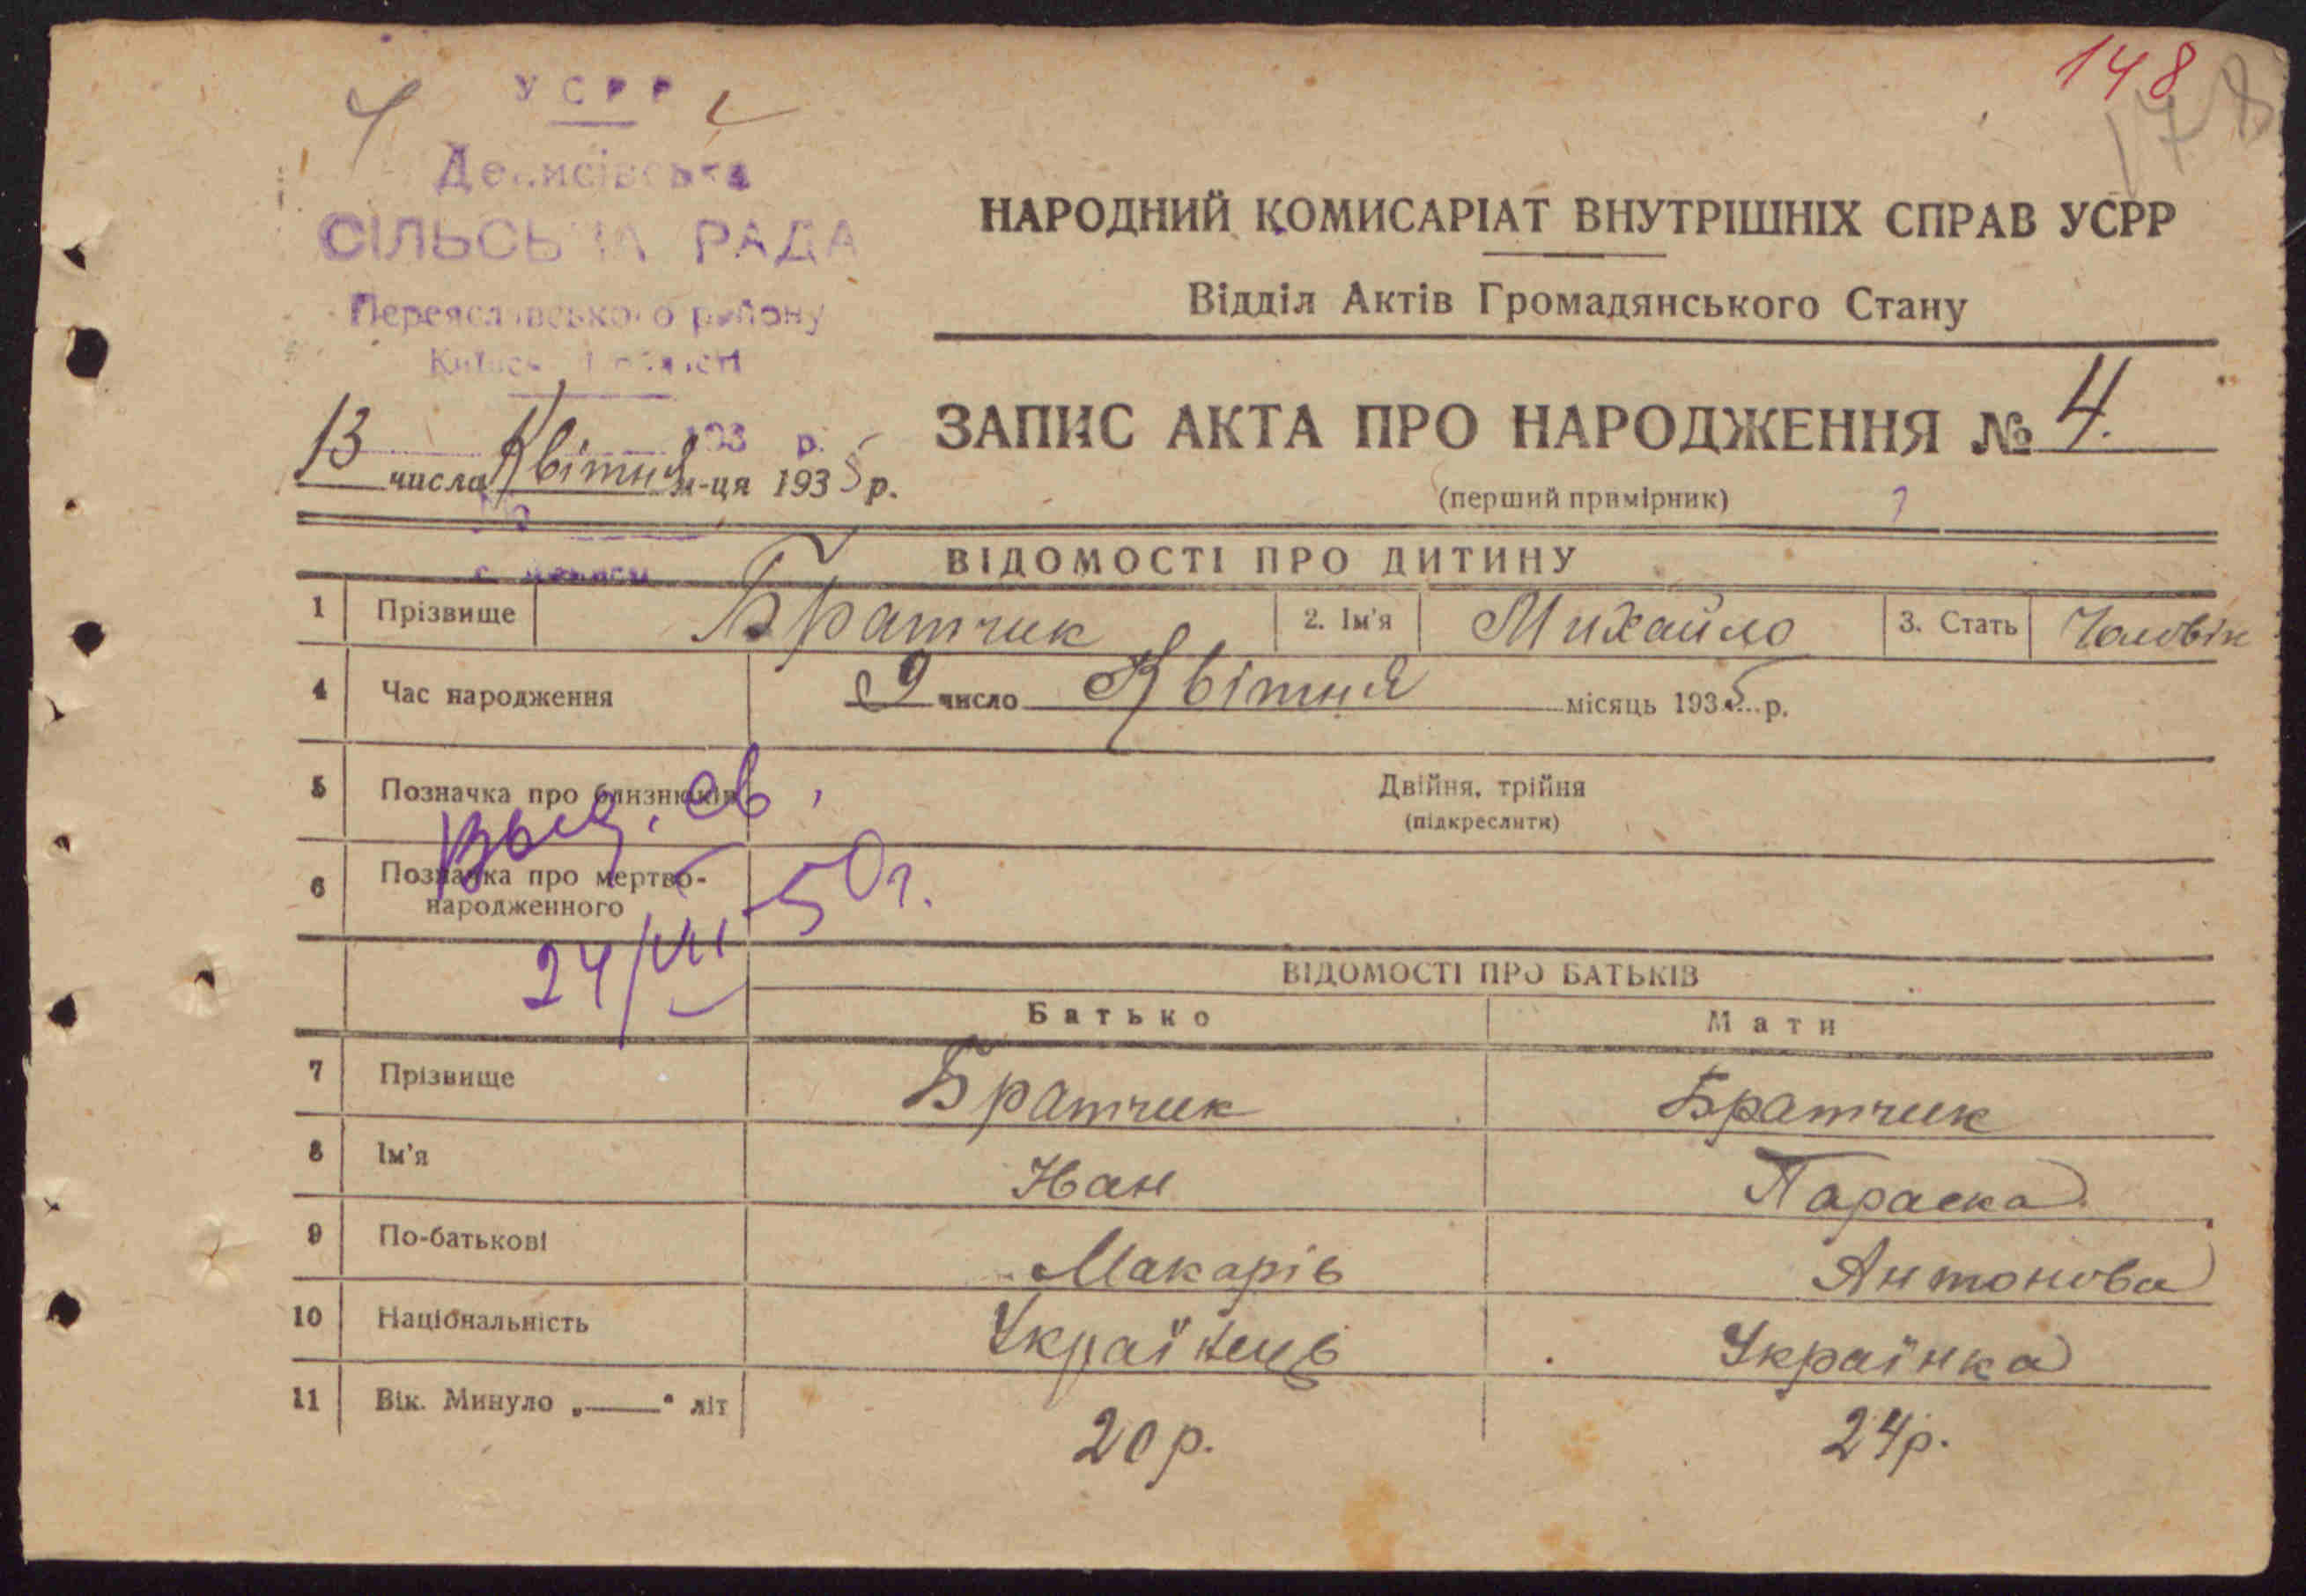 148
178
4
УСРР
Денисівська
СІЛЬСЬКА РАДА
Переяславського району
Київської області
193 р.
13 числа Квітня м-ця 1935 р.
НАРОДНИЙ КОМИСАРІАТ ВНУТРІШНІХ СПРАВ УСРР
Відділ Актів Громадянського Стану
ЗАПИС АКТА ПРО НАРОДЖЕННЯ № 4.
(перший примірник)
ВІДОМОСТІ ПРО ДИТИНУ
1 Прізвище Братчик 2. Ім'я Михайло 3. Стать Чоловік
4 Час народження 09 число Квітня місяць 1935 р.
5 Позначка про близнюків Двійня, трійня
(підкреслити)
Выд. св.
6 Позначка про мертво-
народженного
24/VII 50 г.
ВІДОМОСТІ ПРО БАТЬКІВ
Батько Мати
7 Прізвище Братчик Братчик
8 Ім'я Іван Параска
9 По-батькові Макарів Антонова
10 Національність Українець Українка
11 Вік. Минуло „——“ літ 20 р. 24 р.